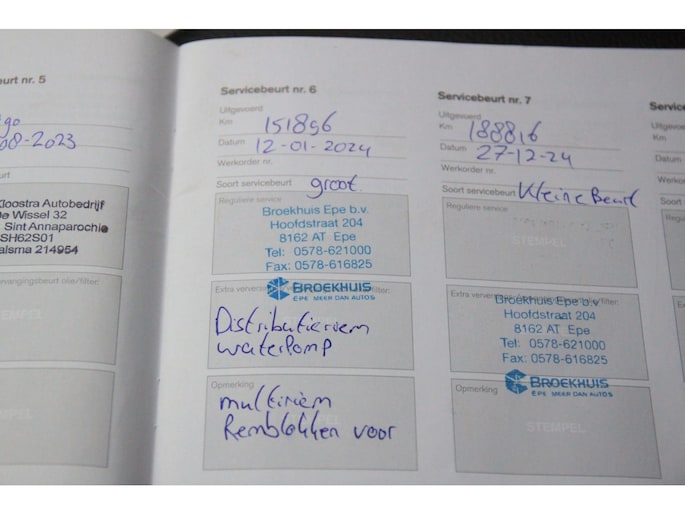 eurt nr. 5
go
08-2023
urt
Kloostra Autobedrijf
De Wissel 32
Sint Annaparochie
SH62S01
alsma 214954
ervangingsbeurt olie/filter:
STEMPEL
Servicebeurt nr. 6
Uitgevoerd
Km 151896
Datum 12-01-2024
Werkorder nr.
Soort servicebeurt groot.
Reguliere service
Broekhuis Epe b.v.
Hoofdstraat 204
8162 AT Epe
Tel: 0578-621000
Fax: 0578-616825
BROEKHUIS
EPE MEER DAN AUTOS
Distributieriem
waterpomp
Opmerking
multiriem
Remblokken voor
STEMPEL
Servicebeurt nr. 7
Uitgevoerd
Km 188816
Datum 27-12-24
Werkorder nr.
Soort servicebeurt Kleine Beurt
Reguliere service
STEMPEL
Broekhuis Epe b.v.
Hoofdstraat 204
8162 AT Epe
Tel: 0578-621000
Fax: 0578-616825
BROEKHUIS
EPE MEER DAN AUTOS
Opmerking
STEMPEL
Service
Uitgevoe
Km
Datum
Werkord
Soort
Regul
Extra
Opm